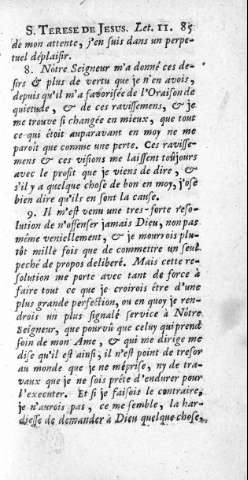 S. TERESE DE JESUS. Let. 11. 85
de mon attente, j'en suis dans un perpe-
tuel déplaisir.
8. Nôtre Seigneur m'a donné ces de-
sirs & plus de vertu que je n'en avois,
depuis qu'il m'a favorisée de l'Oraison de
quietude, & de ces ravissemens, & je
me trouve si changée en mieux, que tout
ce qui étoit auparavant en moy ne me
paroît que comme une perte. Ces ravisse-
mens & ces visions me laissent toûjours
avec le profit que je viens de dire, &
s'il y a quelque chose de bon en moy, j'ose
bien dire qu'ils en sont la cause.
9. Il m'est venu une tres-forte reso-
lution de n'offenser jamais Dieu, non pas
même veniellement, & je mourrois plu-
tôt mille fois que de commettre un seul
peché de propos déliberé. Mais cette re-
solution me porte avec tant de force à
faire tout ce que je croirois être d'une
plus grande perfection, ou en quoy je ren-
drois un plus signalé service à Nôtre
Seigneur, que pourvû que celuy qui prend
soin de mon Ame, & qui me dirige me
dise qu'il est ainsi, il n'est point de tresor
au monde que je ne méprise, ny de tra-
vaux que je ne sois prête d'endurer pour
l'executer. Et si je faisois le contraire,
je n'aurois pas, ce me semble, la har-
diesse de demander à Dieu quelque chose,